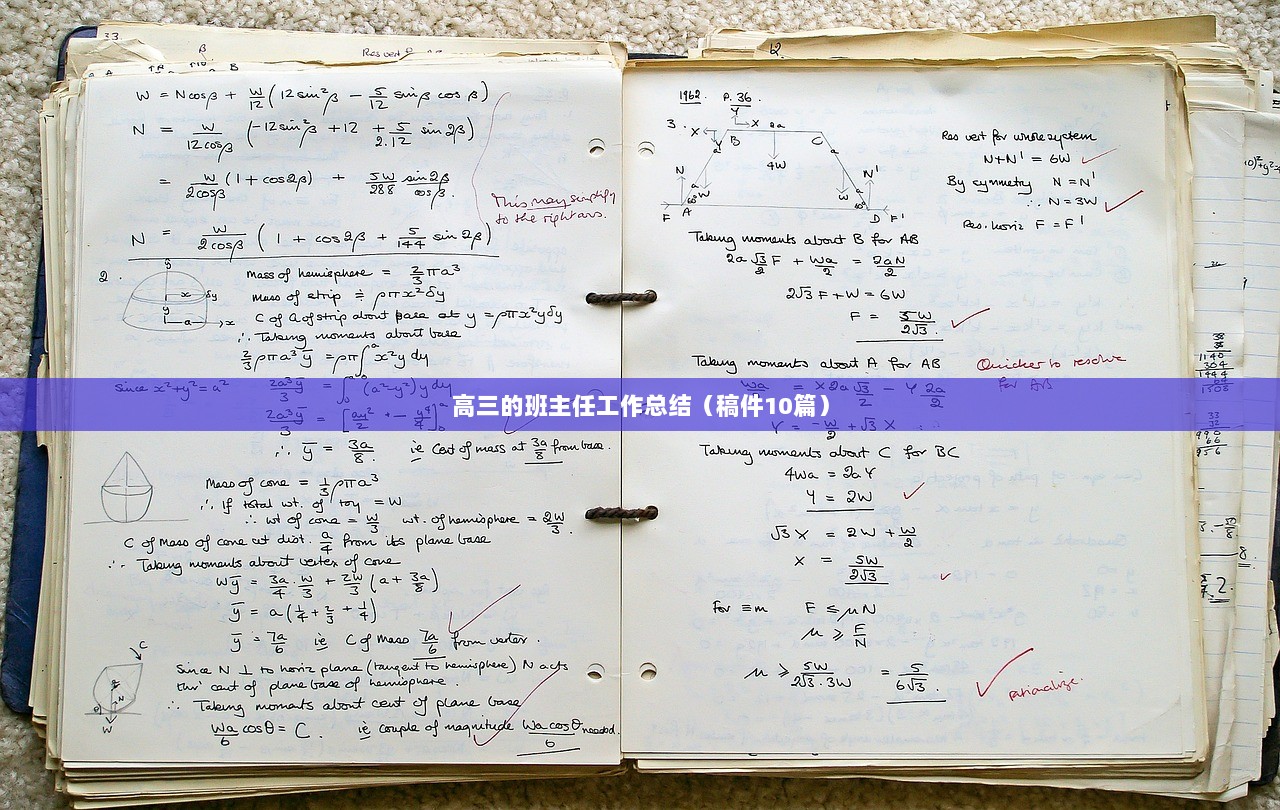 33.
β
Res vert
A B
W = Ncosβ + W/12 (12sin²β − 5/12 sinβ cosβ)
N = W/12cosβ (−12sin²β + 12 + 5/2.12 sin2β)
= W/2cosβ (1 + cos2β) + 5W/288 sin2β/cosβ.
This may simplify
to the right ans.
N = W/2cosβ (1 + cos2β + 5/144 sin2β)
2.
y
x δy
y
a x
Mass of hemisphere = 2/3 πa³
mass of strip ≑ ρπx²δy
C of G of strip about base at y = ρπx²yδy
∴ Taking moments about base
2/3 ρπa³ȳ = ρπ∫₀ᵃ x²y dy
since x²+y²=a² 2a³ȳ/3 = ∫₀ᵃ (a²−y²) y dy
高三的班主任工作总结（稿件10篇）
∴ ȳ = 3a/8. ie Cent of mass at 3a/8 from base.
Mass of cone = 1/3 ρπa³
∴ If total wt. of toy = W
∴ wt of cone = W/3 wt. of hemisphere = 2W/3.
C of Mass of cone at dist. a/4 from its plane base
∴ Taking moments about vertex of cone
Wȳ = 3a/4 . W/3 + 2W/3 (a + 3a/8)
ȳ = a(1/4 + 2/3 + 1/4)
ȳ = 7a/6 ie C of Mass 7a/6 from vertex.
C
N
θ
W
Since N ⊥ to horiz plane (tangent to hemisphere) N acts
thro' cent of plane base of hemisphere.
∴ Taking moments about cent of plane base
Wa/6 cosθ = C. ie couple of magnitude Wa cosθ/6 needed.
1962. P. 36.
3.
Y
X X 2a
B C
4W
N N'
W W
60° 60°
F A D F'
Res vert for whole system
N+N' = 6W
By symmetry N = N'
∴ N = 3W
Res. horiz F = F'
Taking moments about B for AB
2a √3/2 F + Wa/2 = 2aN/2
2√3 F + W = 6W
F = 5W/2√3.
Taking moments about A for AB
Quicker to resolve
for AB
Wa/2 = X 2a √3/2 − Y 2a/2
Y = −W/2 + √3 X
Taking moments about C for BC
4Wa = 2aY
Y = 2W
√3 X = 2W + W/2
X = 5W/2√3
For ≡m F ≤ μN
μ ≥ F/N
μ ≥ 5W/2√3.3W = 5/6√3.
rationalize.